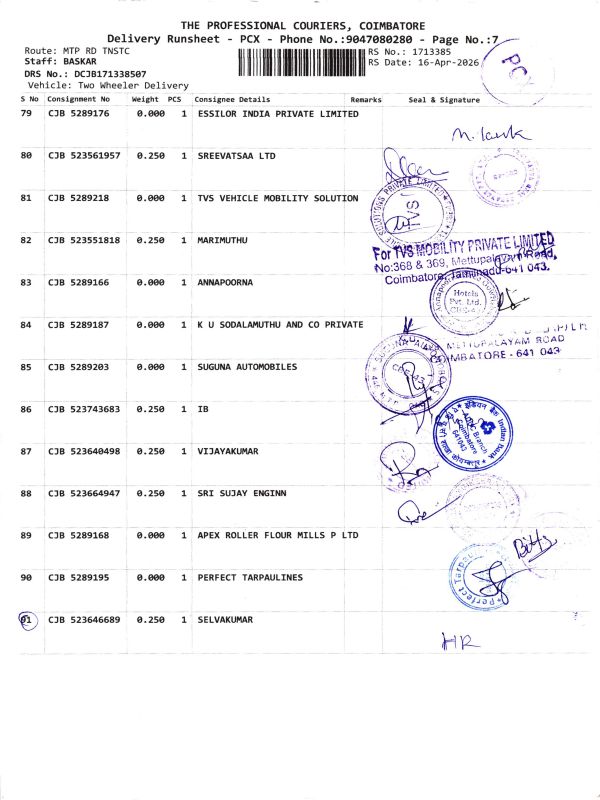 THE PROFESSIONAL COURIERS, COIMBATORE
Delivery Runsheet - PCX - Phone No.:9047080280 - Page No.:7
Route: MTP RD TNSTC
RS No.: 1713385
Staff: BASKAR
RS Date: 16-Apr-2026
DRS No.: DCJB171338507
Vehicle: Two Wheeler Delivery
PCX
S No Consignment No Weight PCS Consignee Details Remarks Seal & Signature
79 CJB 5289176 0.000 1 ESSILOR INDIA PRIVATE LIMITED
80 CJB 523561957 0.250 1 SREEVATSAA LTD
81 CJB 5289218 0.000 1 TVS VEHICLE MOBILITY SOLUTION
TVS
82 CJB 523551818 0.250 1 MARIMUTHU
For TVS MOBILITY PRIVATE LIMITED
No:368 & 369, Mettupalayam Road,
Coimbatore, Tamilnadu-641 043.
83 CJB 5289166 0.000 1 ANNAPOORNA
Hotels
Pvt. Ltd.
84 CJB 5289187 0.000 1 K U SODALAMUTHU AND CO PRIVATE
METTUPALAYAM ROAD
COIMBATORE - 641 043
85 CJB 5289203 0.000 1 SUGUNA AUTOMOBILES
86 CJB 523743683 0.250 1 IB
इंडियन बैंक Indian Bank
Branch
Coimbatore
641043
87 CJB 523640498 0.250 1 VIJAYAKUMAR
88 CJB 523664947 0.250 1 SRI SUJAY ENGINN
89 CJB 5289168 0.000 1 APEX ROLLER FLOUR MILLS P LTD
90 CJB 5289195 0.000 1 PERFECT TARPAULINES
Perfect Tarpaulines
91 CJB 523646689 0.250 1 SELVAKUMAR
HR